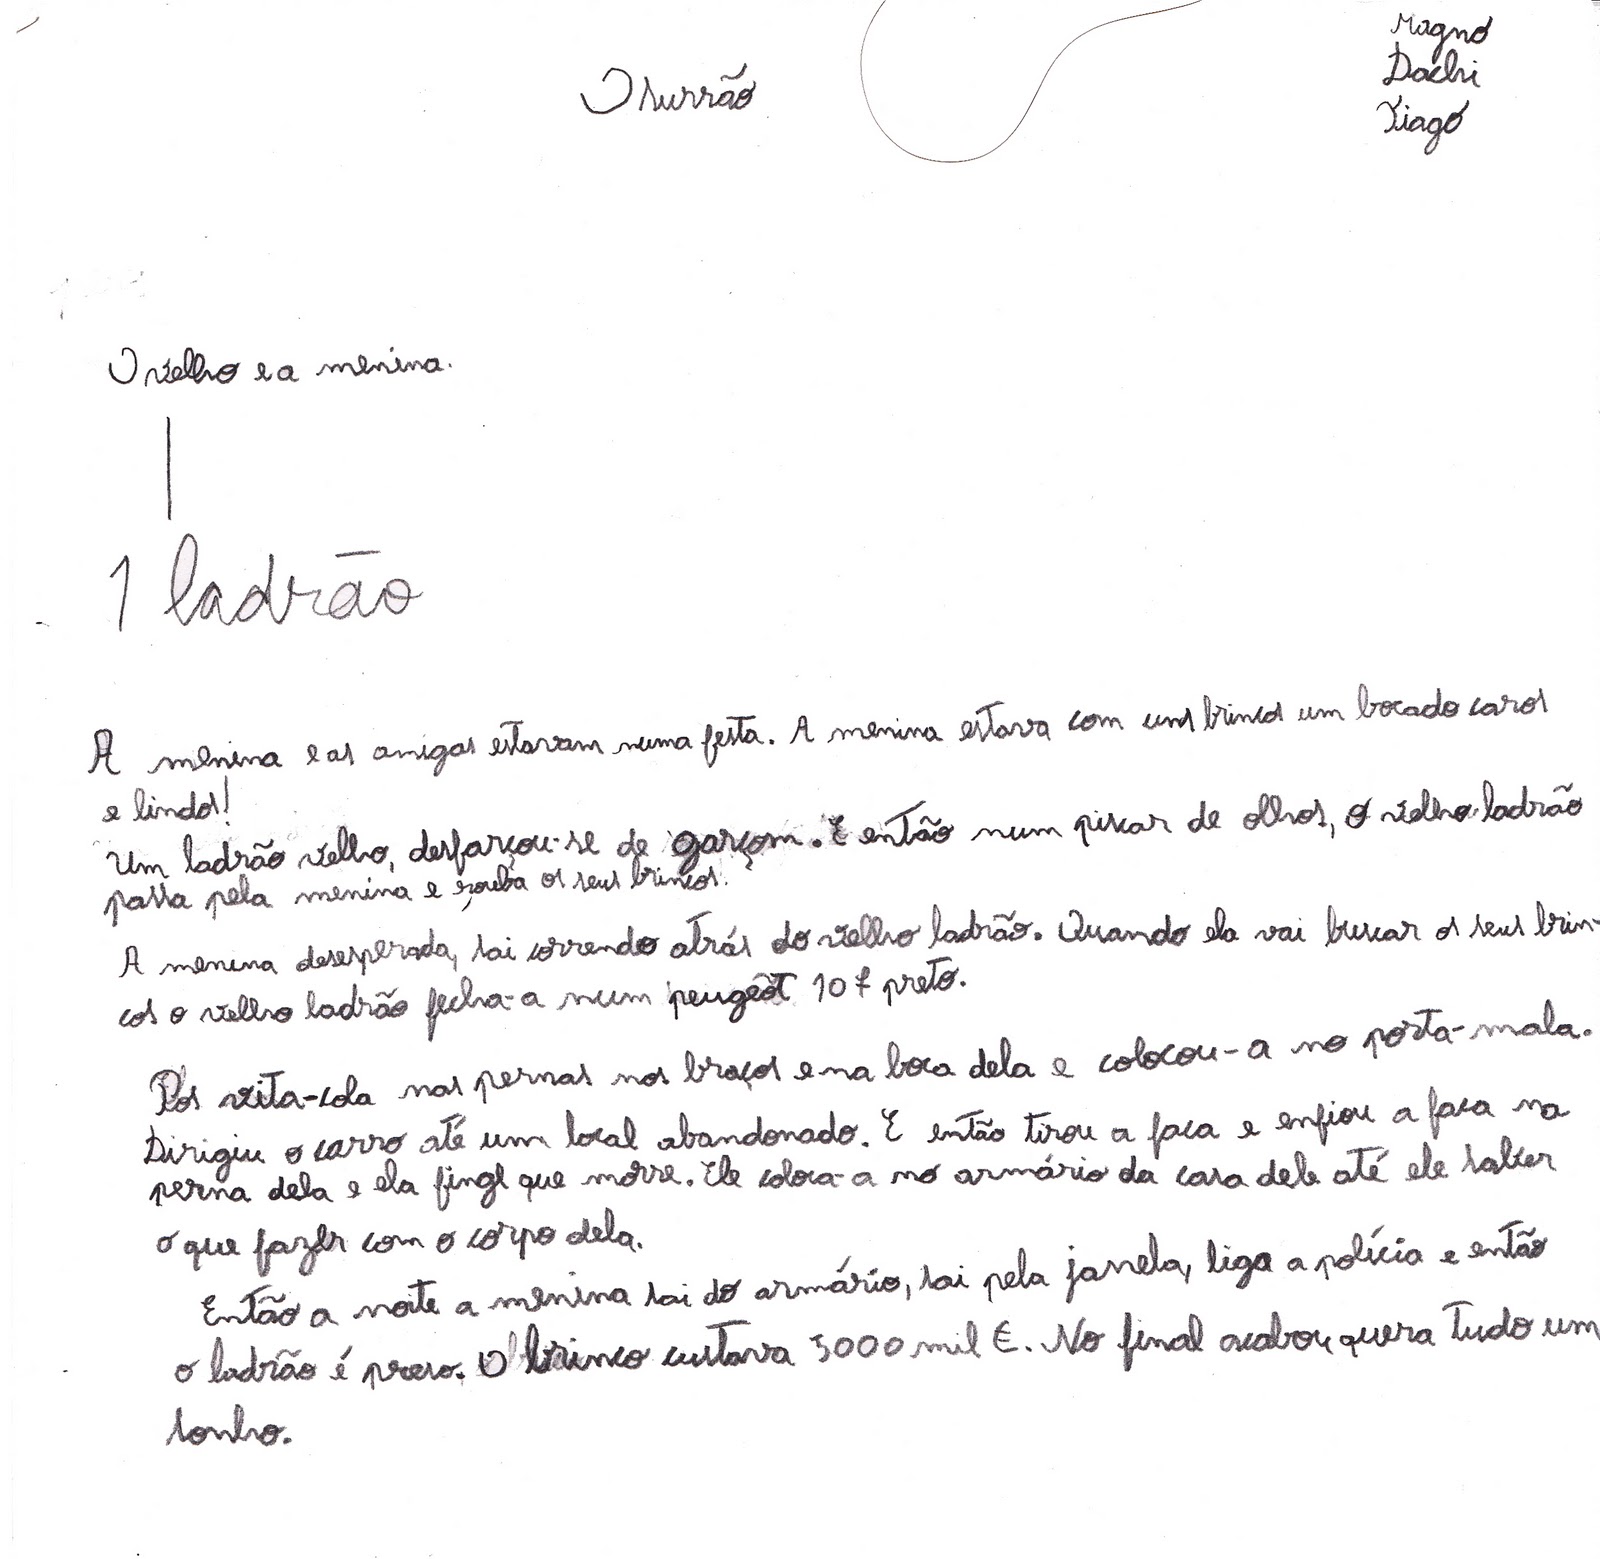 Magno
Dachi
Tiago
O surrão
O velho e a menina.
1 ladrão
A menina e as amigas estavam numa festa. A menina estava com uns brincos um bocado caros
e lindos!
Um ladrão velho, desfarçou-se de garçom. E então num piscar de olhos, o velho ladrão
passa pela menina e rouba os seus brincos.
A menina desesperada, sai correndo atrás do velho ladrão. Quando ela vai buscar os seus brin-
cos o velho ladrão fecha-a num peugeot 107 preto.
Pôs vita-cola nas pernas nos braços e na boca dela e colocou-a no porta-mala.
Dirigiu o carro até um local abandonado. E então tirou a faca e enfiou a faca na
perna dela e ela finge que morre. Ele coloca-a no armário da casa dele até ele saber
o que fazer com o corpo dela.
Então a noite a menina sai do armário, sai pela janela, liga a polícia e então
o ladrão é preso. O brinco custava 5000 mil €. No final acabou quera tudo um
sonho.